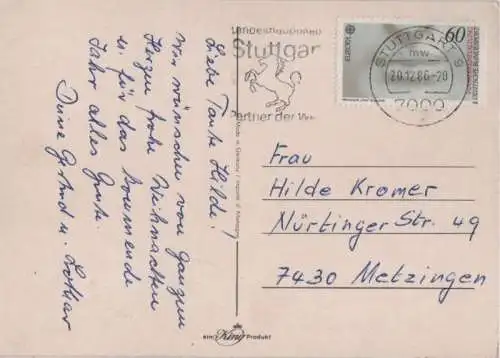 Liebe Tante Hilde!
Wir wünschen von ganzem
Herzen frohe Weihnachten
u. für das kommende
Jahr alles Gute.
Deine u. Lothar
Landeshauptstadt
Stuttgar
Partner der We
EUROPA
60
DEUTSCHE BUNDESPOST
STUTTGART 9
mw
20.12.86-20
7000
Frau
Hilde Kromer
Nürtinger Str. 49
7430 Metzingen
ein King Produkt